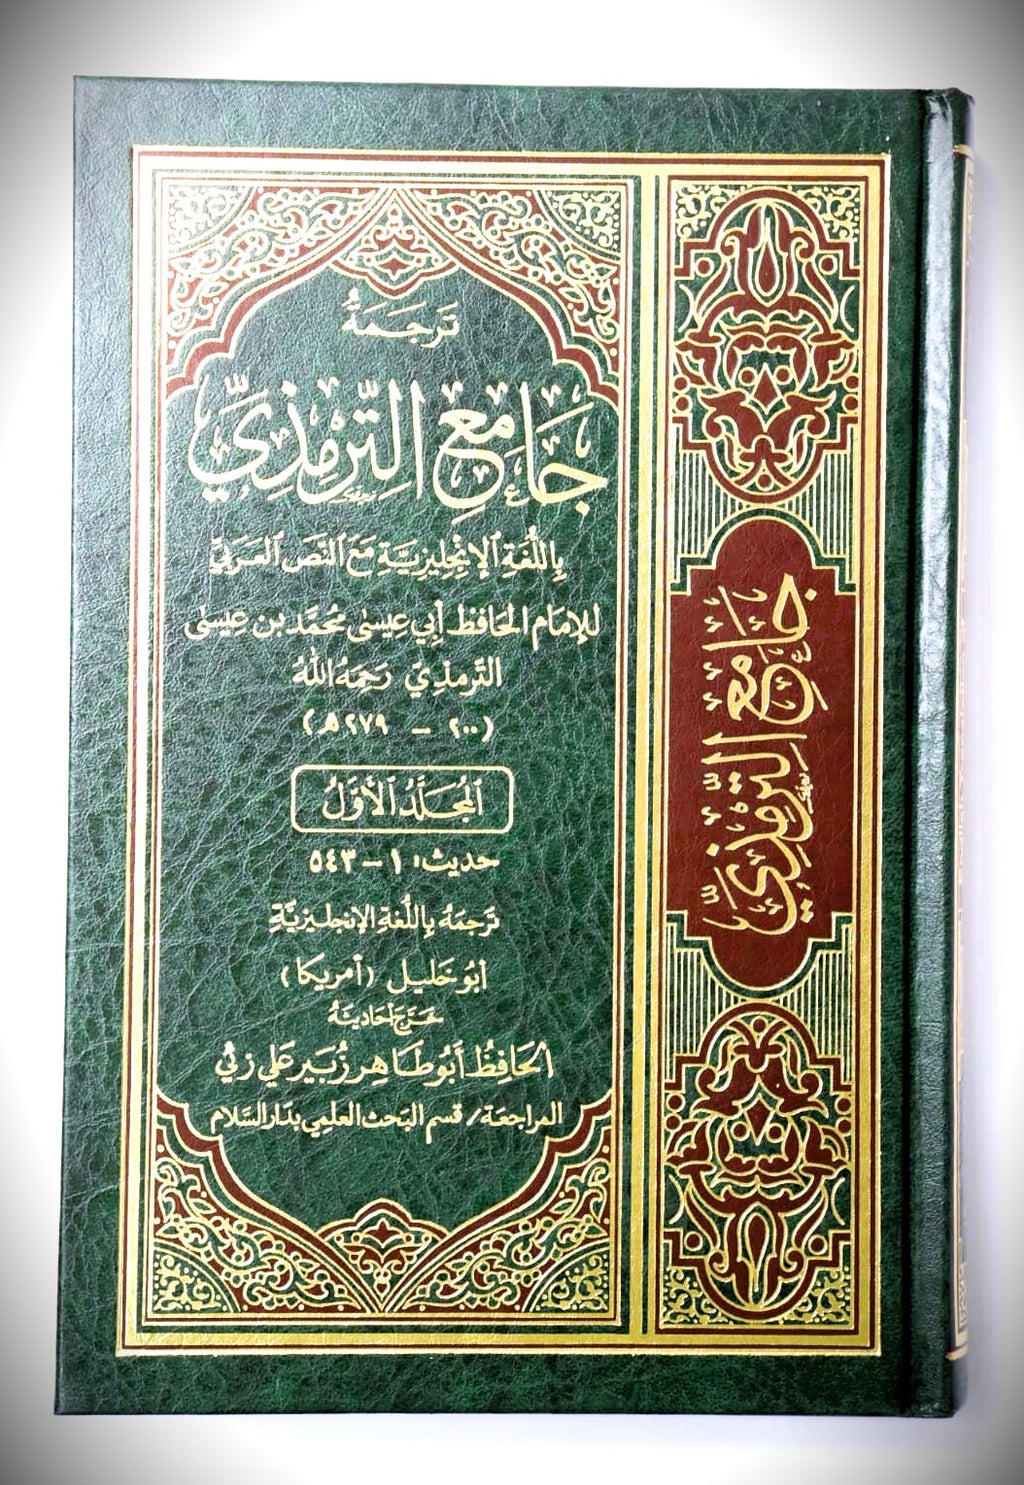 تَرجَمَةُ
جَامِعِ التِّرْمِذِيِّ
بِاللُّغَةِ الإِنْجِلِيزِيَّةِ مَعَ النَّصِ العَرَبيِّ
للإمَام الحَافظ أبِي عِيسىٰ مُحمَّد بن عِيسىٰ
التّرمذِيّ رَحِمَهُ اللهُ
(٢٠٠ – ٢٧٩ هـ)
المُجَلَّدُ الأَوَّلُ
حديث: ١ – ٥٤٣
تَرجَمَهُ بِاللُّغةِ الإنجليزيَّةِ
أبُو خَليل (أمريكا)
خَرّج أحَاديثَهُ
الحَافِظُ أبُو طَاهِر زُبَير عَلي زئي
المراجعَة/ قسم البَحث العلمِي بدَار السَّلام
جَامِعِ التِّرْمِذِيِّ